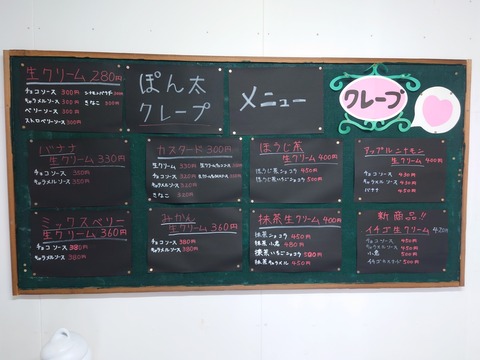 生クリーム 280円
チョコソース 300円 シナモンパウダー
キャラメルソース 300円 きなこ 300円
ベリーソース 300円
ストロベリーソース 300円
ぽん太
クレープ
メニュー
クレープ
バナナ
生クリーム 330円
チョコソース 350円
キャラメルソース 350円
カスタード 300円
生クリーム 330円
チョコソース 320円
キャラメルソース 320円
きなこ 320円
ほうじ茶
生クリーム 400円
ほうじ茶ショコラ 450円
ほうじ茶いちごショコラ 500円
アップルシナモン
生クリーム 400円
チョコソース 430円
キャラメルソース 430円
バナナ 450円
ミックスベリー
生クリーム 360円
チョコソース 380円
キャラメルソース 380円
みかん
生クリーム 360円
チョコソース 380円
キャラメルソース 380円
抹茶生クリーム 400円
抹茶ショコラ 450円
抹茶小倉 480円
抹茶いちごショコラ 500円
抹茶キャラメル 450円
新商品!!
イチゴ生クリーム 420円
チョコソース 450円
キャラメルソース 450円
小倉 500円
イチゴカスタード 500円